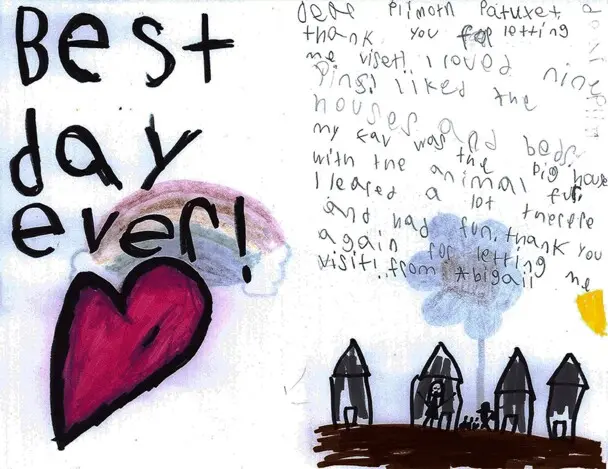 Best
day
ever!
Dear Plimoth Patuxet,
thank you for letting
me viseti. I loved nine
Pins! I liked the
houses and beds,
my fav was the big house
with the animal fur.
I leared a lot theere
and had fun. thank you
again for letting me
visiti. from Abigail
Hi